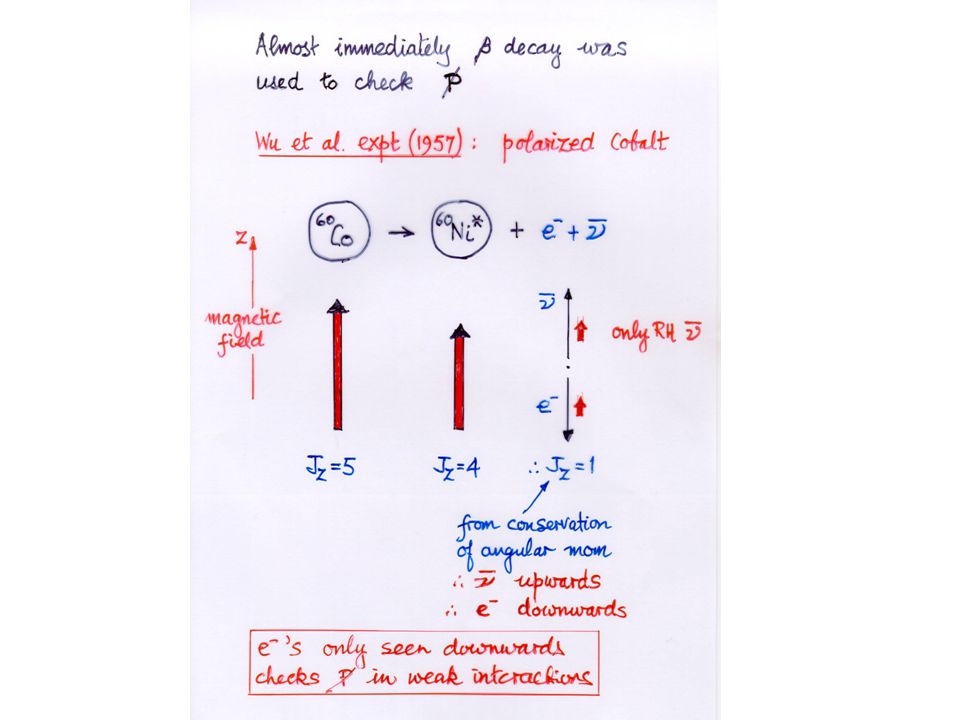 Almost immediately β decay was
used to check P̸
Wu et al. expt (1957) : polarized Cobalt
z
⁶⁰Co → ⁶⁰Ni* + e⁻ + ν̅
magnetic
field
ν̅
only RH ν̅
e⁻
J_z = 5
J_z = 4
∴ J_z = 1
from conservation
of angular mom
∴ ν̅ upwards
∴ e⁻ downwards
e⁻'s only seen downwards
checks P̸ in weak interactions